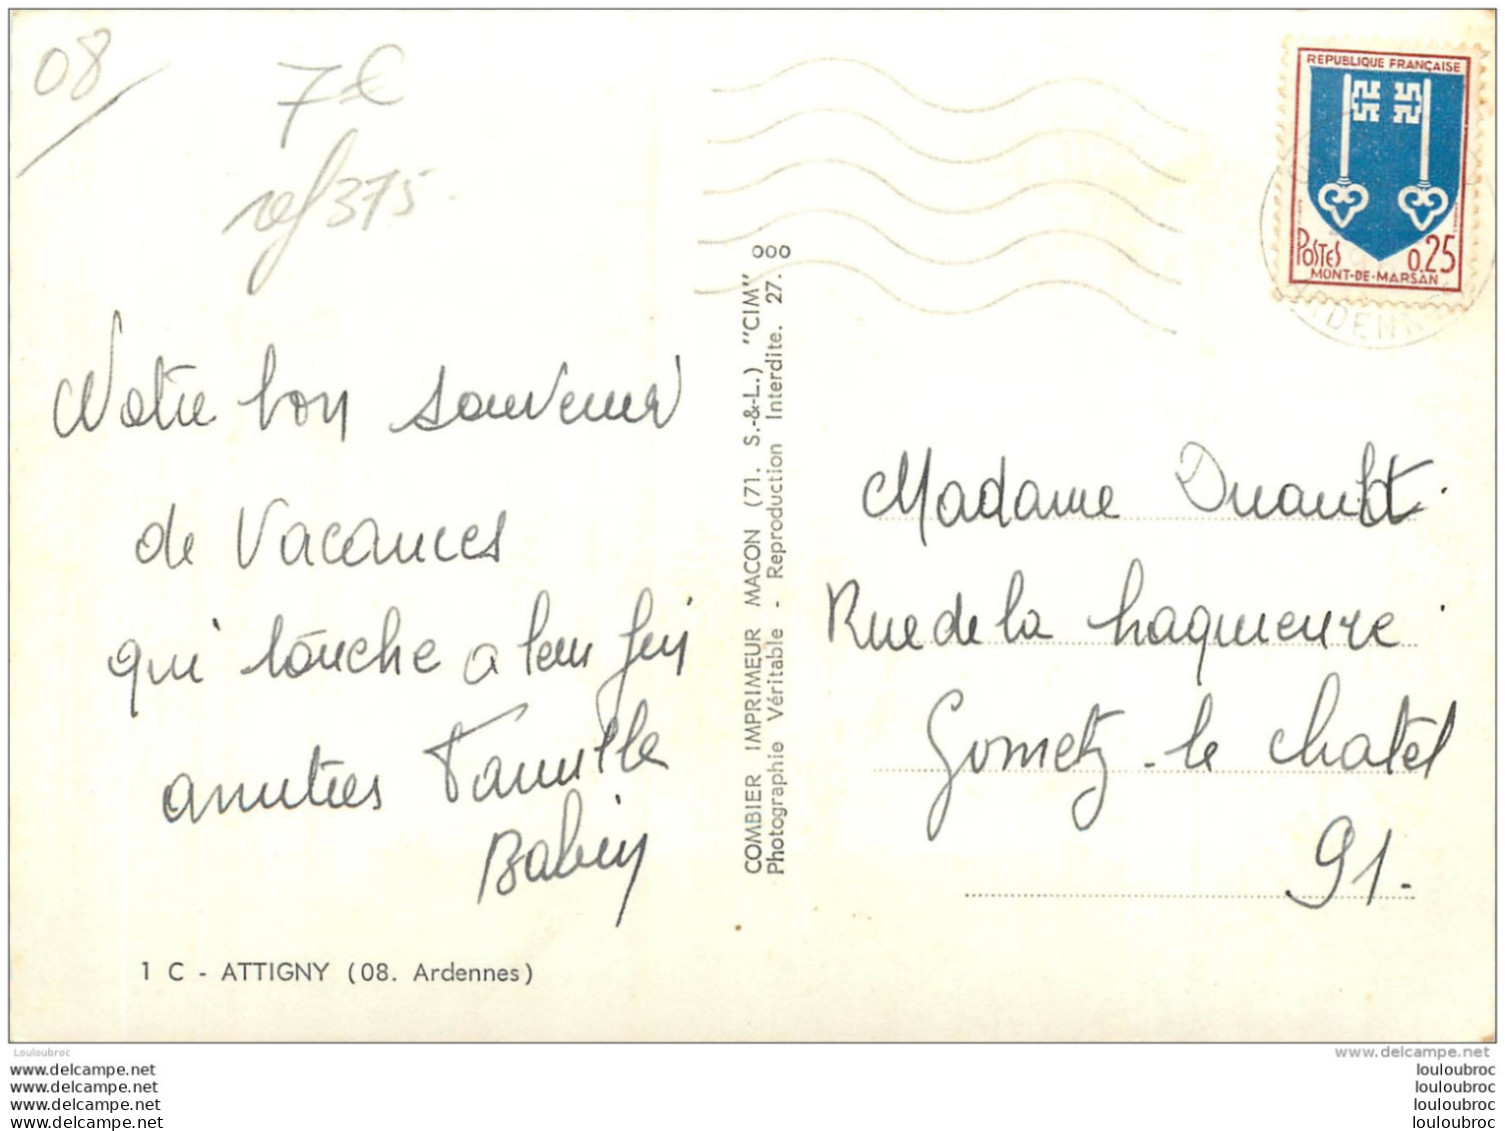 08
7€
ref 375
Notre bon souvenir
de Vacances
qui touche a leur fin
amitiés Famille
Babin
1 C - ATTIGNY (08. Ardennes)
COMBIER IMPRIMEUR MACON (71. S.-&-L.) "CIM"
Photographie Véritable - Reproduction Interdite. 27.
ooo
REPUBLIQUE FRANÇAISE
POSTES 0.25
MONT-DE-MARSAN
ARDENNES
Madame Duault
Rue de la
Gometz-le chatel
91.
Louloubroc
www.delcampe.net
www.delcampe.net
www.delcampe.net
www.delcampe.net
www.delcampe.net
louloubroc
louloubroc
louloubroc
louloubroc